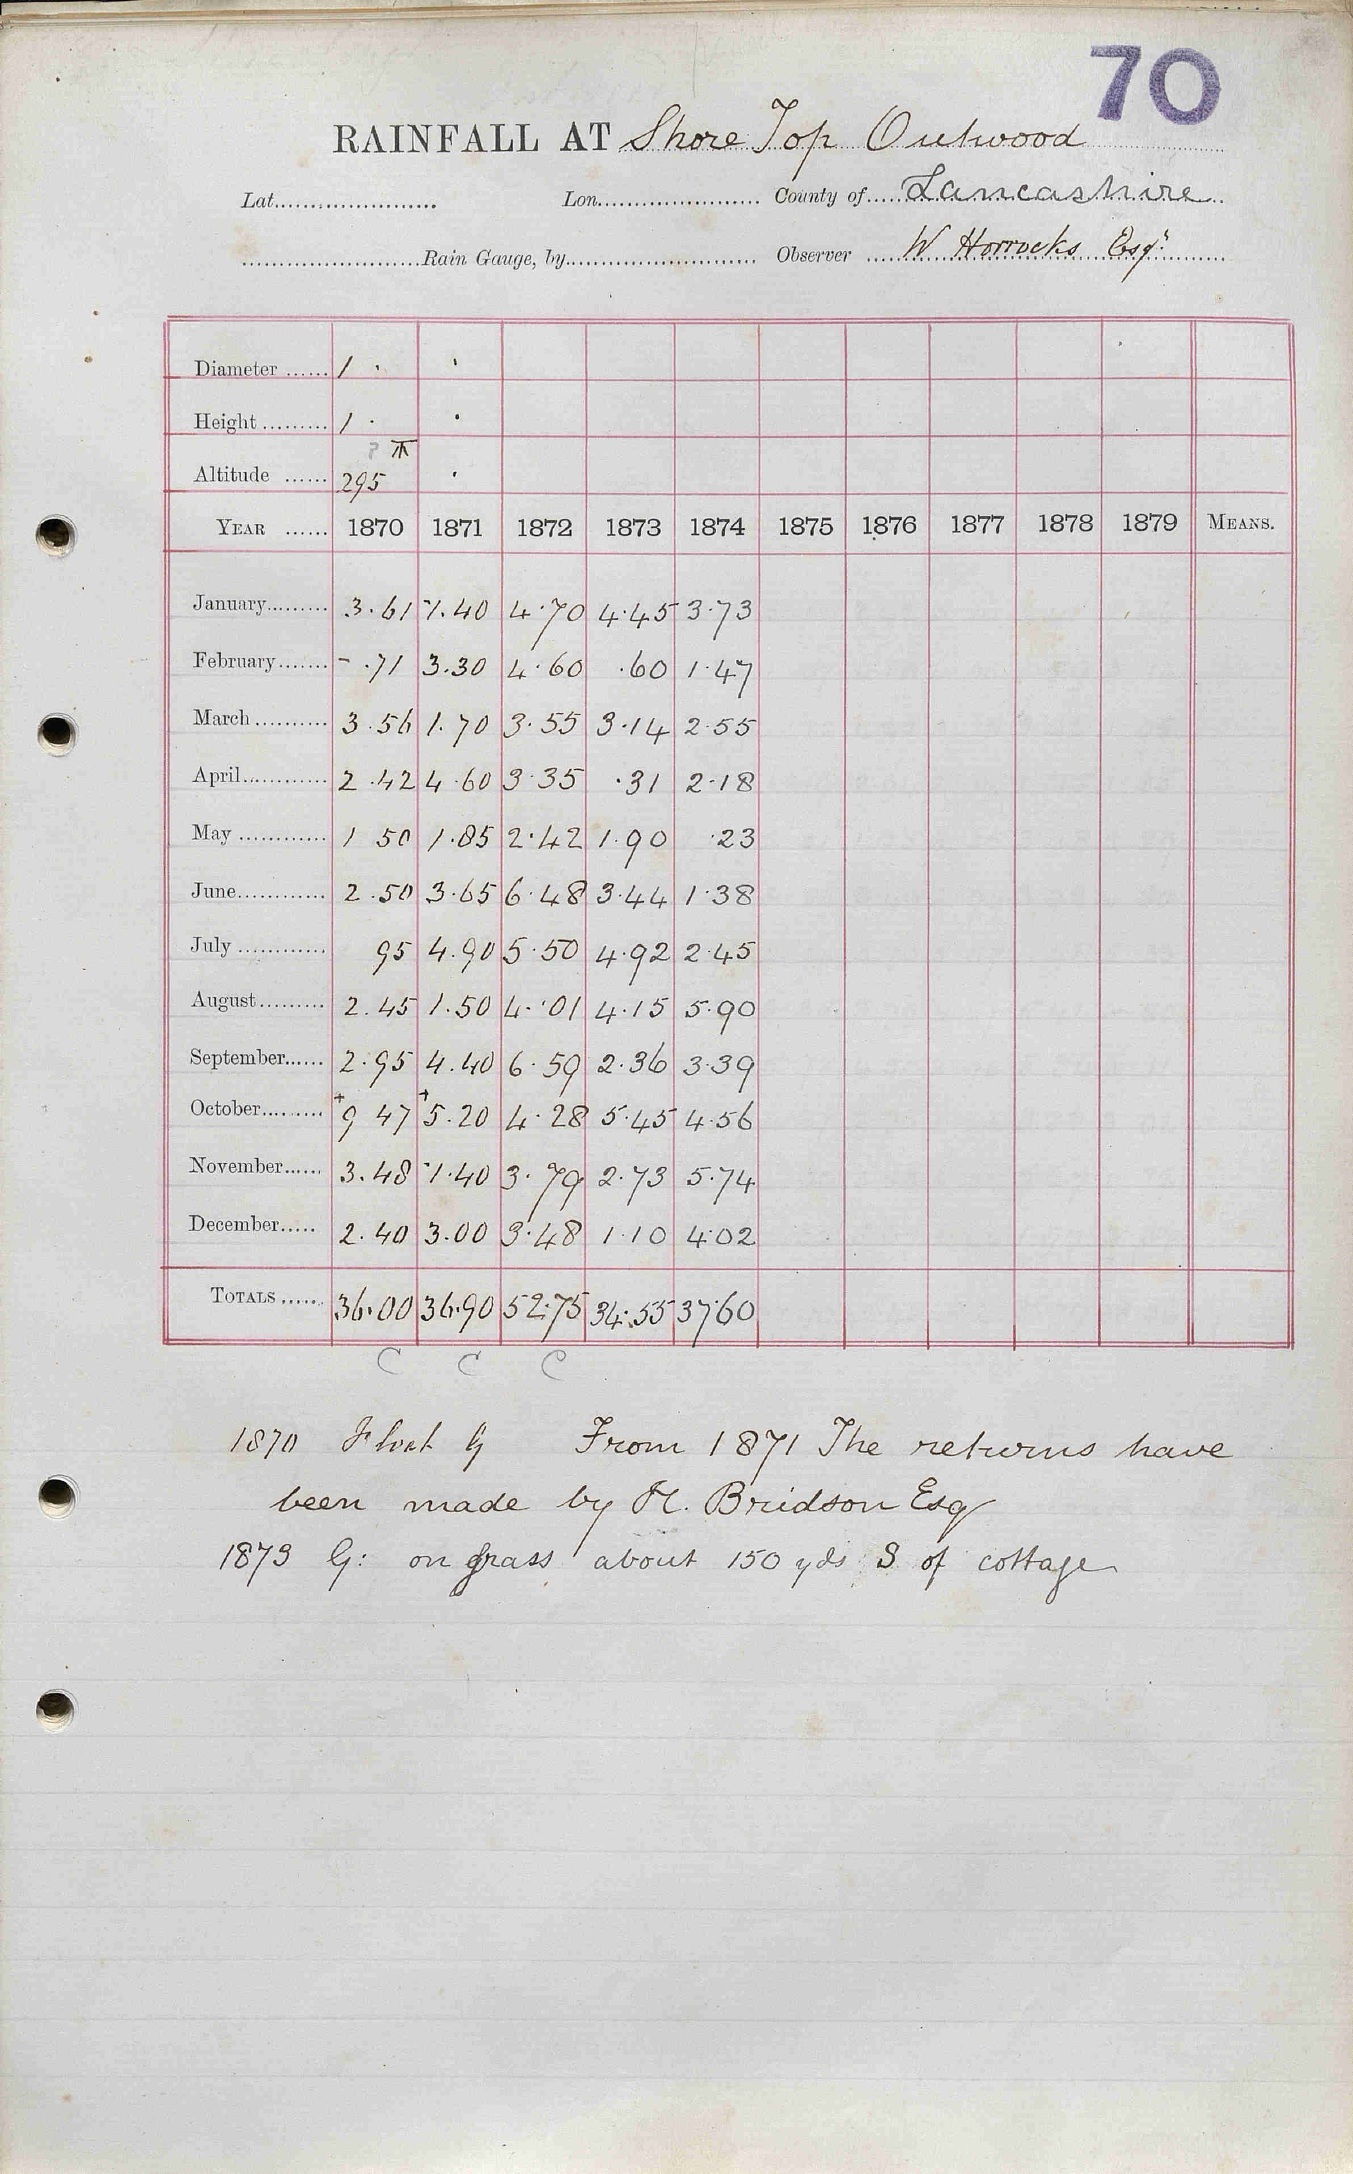 70
RAINFALL AT Shore Top Outwood
Lat...................... Lon...................... County of Lancashire
..........................Rain Gauge, by.......................... Observer W Horrocks Esqr.
Diameter ...... 1 . '
Height ......... 1 . .
Altitude ...... 295 .
YEAR ...... 1870 1871 1872 1873 1874 1875 1876 1877 1878 1879 MEANS.
January......... 3.61 1.40 4.70 4.45 3.73
February....... - .71 3.30 4.60 .60 1.47
March .......... 3.56 1.70 3.55 3.14 2.55
April............ 2.42 4.60 3.35 .31 2.18
May ............ 1 50 1.85 2.42 1.90 .23
June............ 2.50 3.65 6.48 3.44 1.38
July ............ 95 4.90 5.50 4.92 2.45
August ......... 2.45 1.50 4.01 4.15 5.90
September...... 2.95 4.40 6.59 2.36 3.39
October......... +9 47 +5.20 4.28 5.45 4.56
November...... 3.48 1.40 3.79 2.73 5.74
December..... 2.40 3.00 3.48 1.10 4.02
TOTALS ...... 36.00 36.90 52.75 34.55 37.60
C C C
1870 Float G From 1871 The returns have
been made by H. Bridson Esq
1873 G: on grass about 150 yds S of cottage